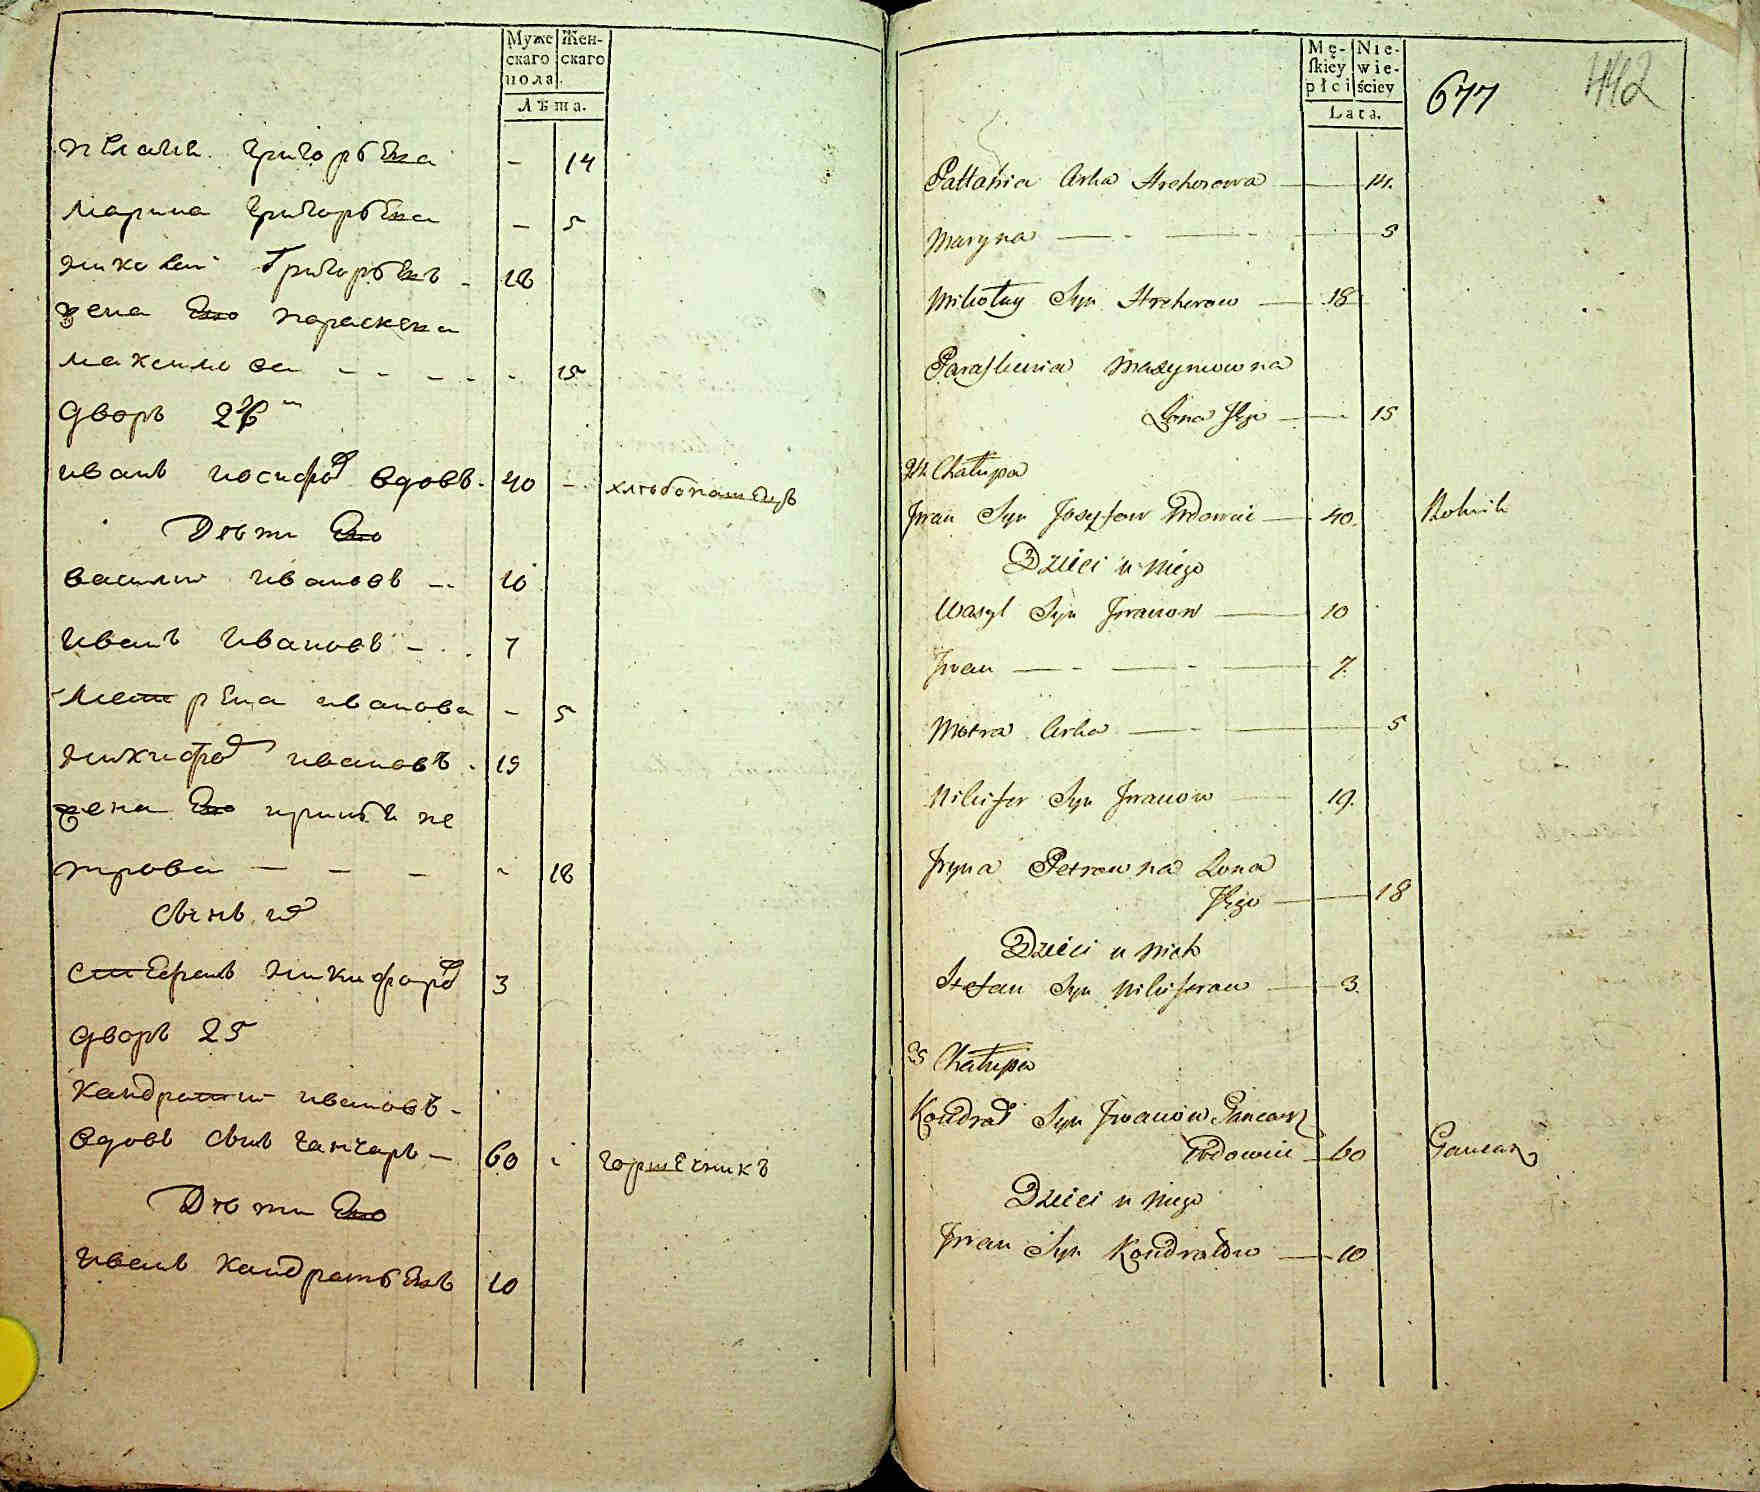 Муже Жен-
скаго скаго
пола.
Лѣта.
пелагия григорьева - 14
марина григорьева - 5
николай Григорьевъ - 18
жена Его параскева
максимова - - - - 15
дворъ 24й
иванъ иосифов вдовъ - 40 - хлебопашецъ
Дѣти Его
василий ивановъ - 10
иванъ ивановъ - 7
метрена иванова - 5
никифор ивановъ - 19
жена Его ирина пе
трова - - - - 18
Сынъ их
стефанъ никифоров 3
дворъ 25
кандратий ивановъ -
вдовъ сынъ ганчаръ - 60 - горшечникъ
Дѣти Его
иванъ кандратьевъ 10
Mę- Nie-
skiey wie-
płci ściey
Lata.
677
442
Pallahia Corka Hrehorowa — 14.
Maryna — - — - — 5
Mikołay Syn Hrehorow — 18
Paraskewia Maxymowna
Zona Jego — 15
24 Chałupa
Jwan Syn Jozefow Wdowiec — 40. Rolnik
Dzieci u niego
Wasyl Syn Jwanow — 10
Jwan — - — - — 7.
Motra Corka — - — 5
Nikifor Syn Jwanow — 19.
Jryna Petrowna Zona
Jego — 18
Dzieci u nich
Stefan Syn Nikiforow — 3.
25 Chałupa
Kondrat Syn Jwanow Gancarz
Wdowiec — 60 Gancarz
Dzieci u niego
Jwan Syn Kondratow — 10